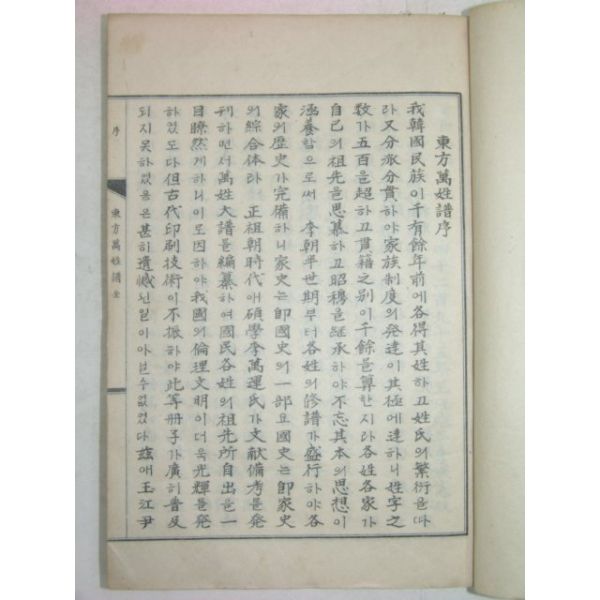 東方萬姓譜序
我韓國民族이千有餘年前에各得其姓하고姓氏의繁衍을따
라又分派分貫하야家族制度의發達이其極에達하니姓字之
数가五百을超하고貫籍之别이千餘를算한지라各姓各家가
自己의祖先을思慕하고昭穆을継承하야不忘其本의思想이
涵養함으로써李朝半世期부터各姓의修譜가盛行하야各
家의歷史가完備하니家史는卽國史의一部요國史는卽家史
의綜合体라正祖朝時代애碩學李萬運氏가文献備考를発
刊하면서萬姓大譜를編纂하여國民各姓의祖先所自出을一
目瞭然게하니이도因하야我國의倫理文明이더욱光輝를発
하였도다但古代印刷技術이不振하야此等册子가廣히普及
되지못하였음은甚히遺憾된일이아닐수없었다玆애玉江尹
序
東方萬姓譜全